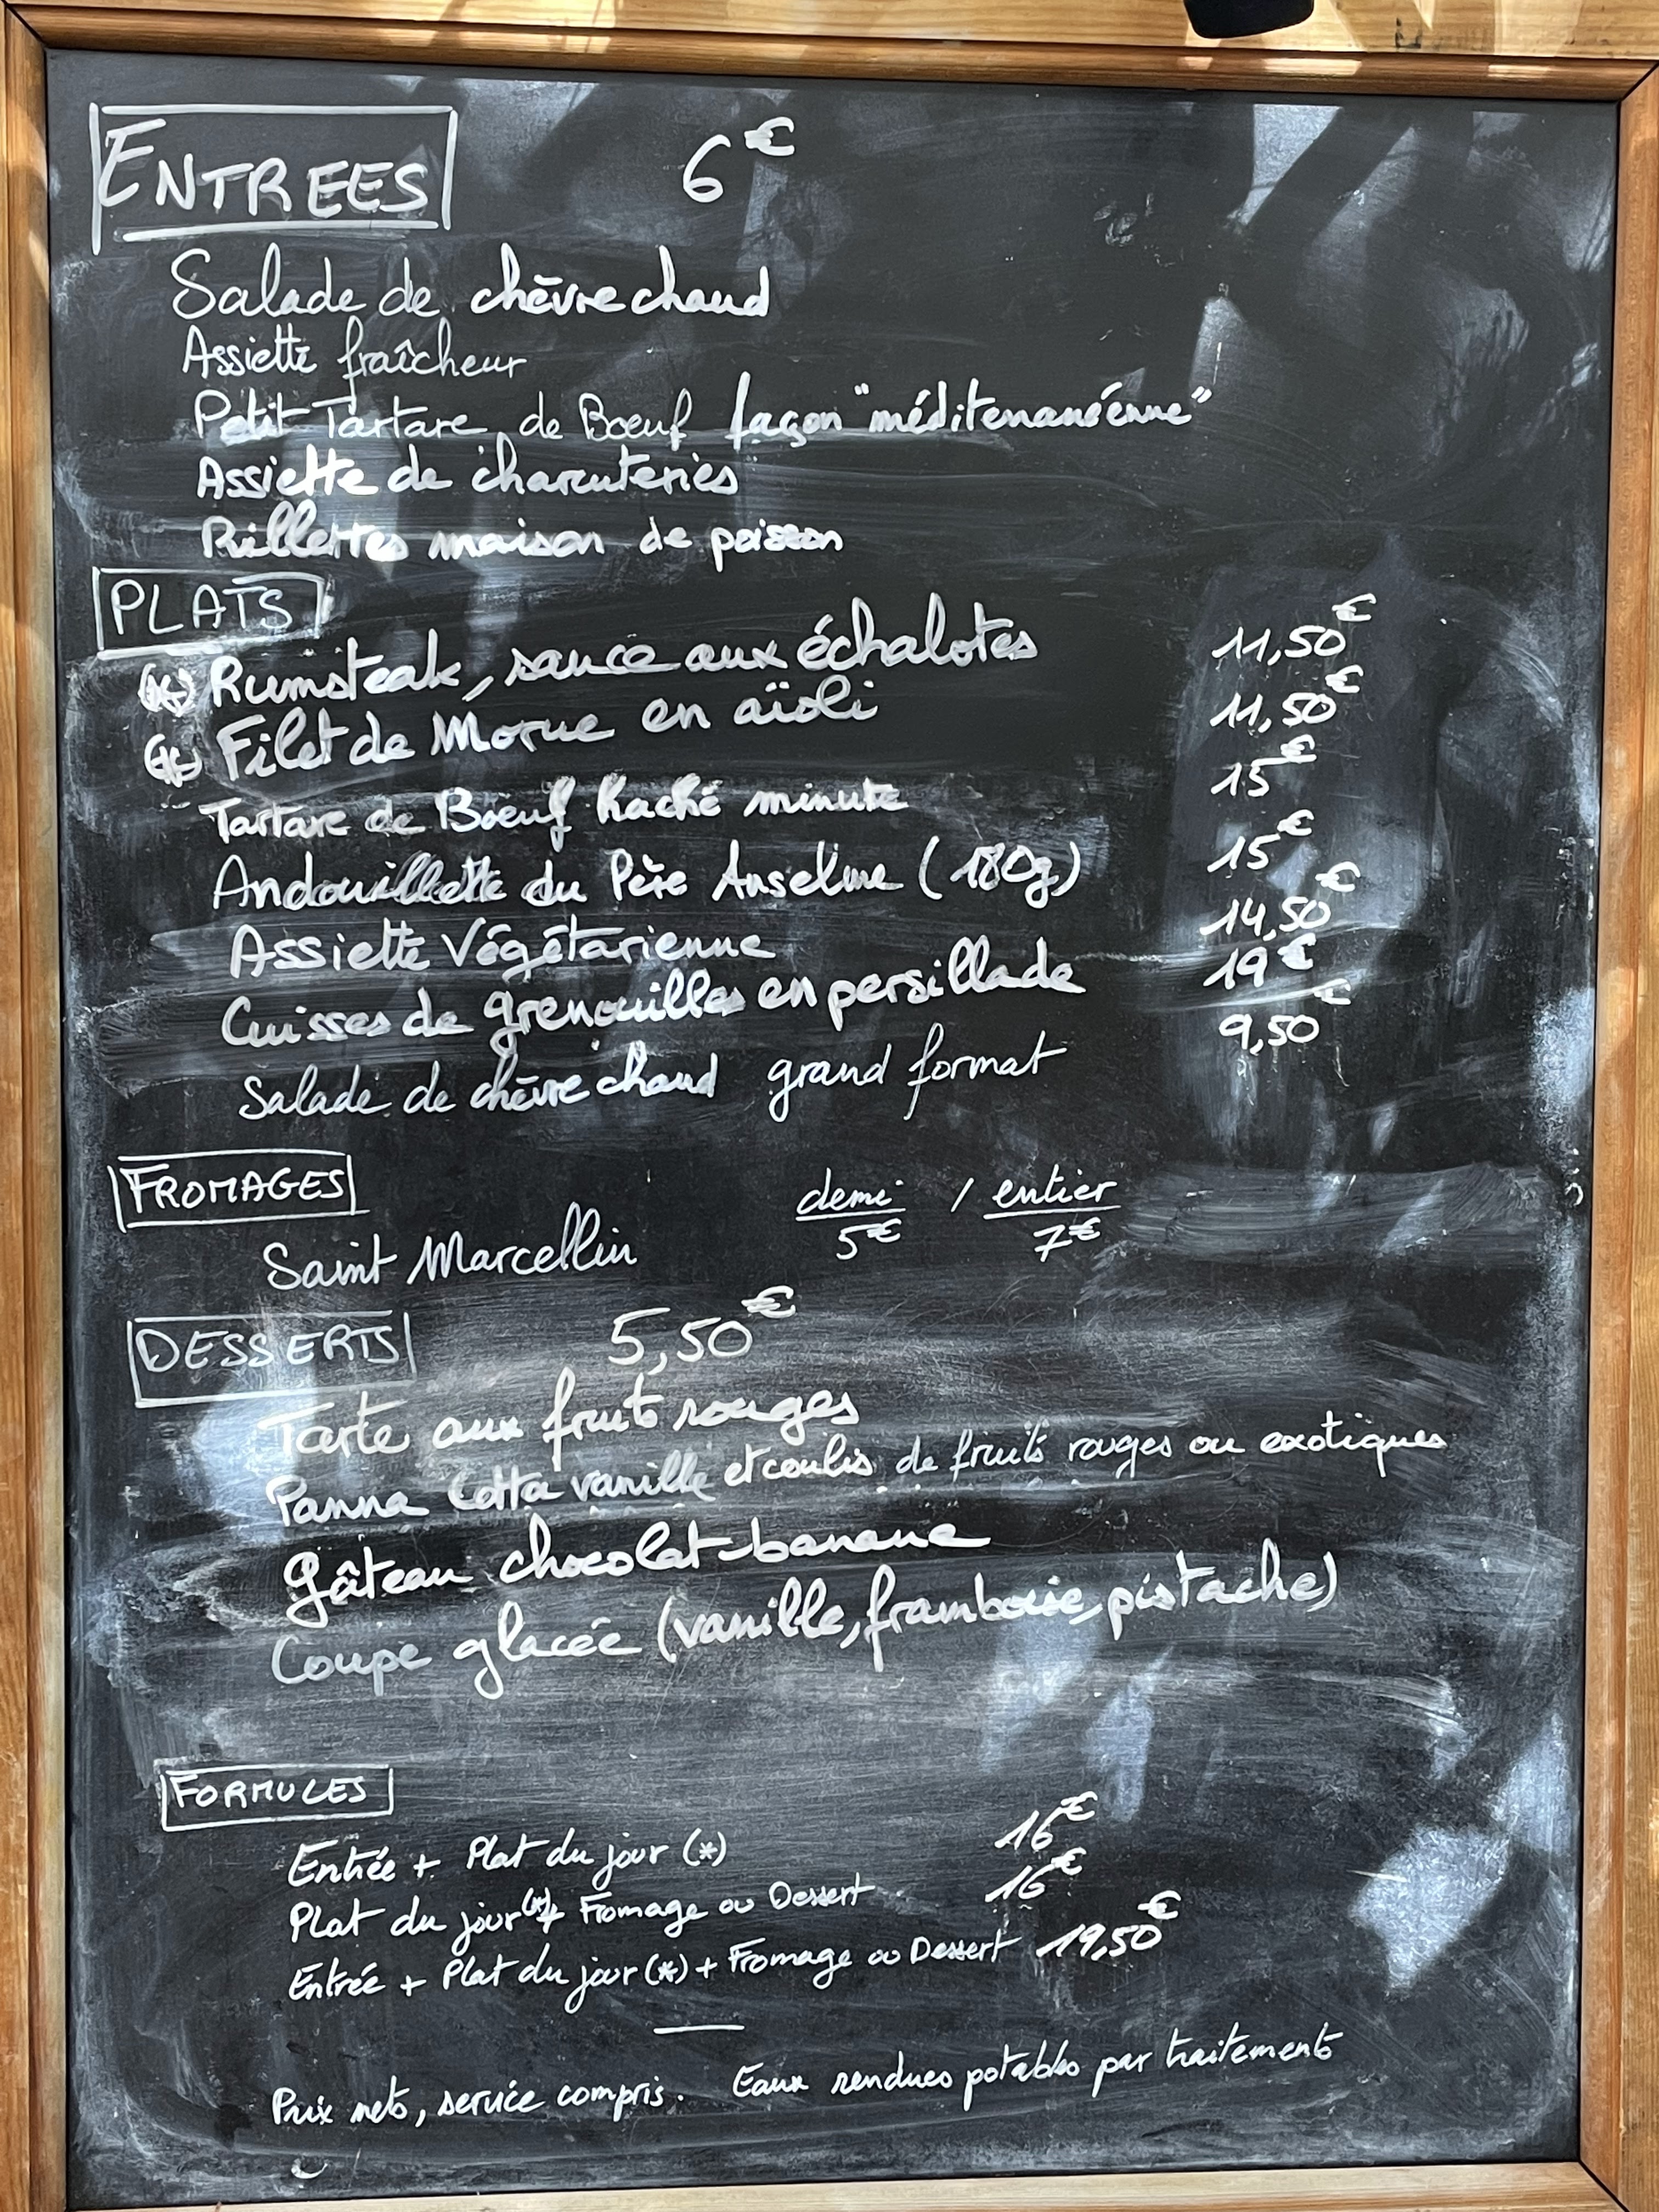 ENTREES 6€
Salade de chèvre chaud
Assiette fraîcheur
Petit Tartare de Boeuf façon "méditerranéenne"
Assiette de charcuteries
Rillettes maison de poisson
PLATS
(*) Rumsteak, sauce aux échalotes 11,50€
(*) Filet de Morue en aïoli 11,50€
Tartare de Boeuf haché minute 15€
Andouillette du Père Anselme (180g) 15€
Assiette Végétarienne 14,50€
Cuisses de grenouilles en persillade 19€
Salade de chèvre chaud grand format 9,50€
FROMAGES demi / entier
Saint Marcellin 5€ 7€
DESSERTS 5,50€
Tarte aux fruits rouges
Panna Cotta vanille et coulis de fruits rouges ou exotiques
Gâteau chocolat-banane
Coupe glacée (vanille, framboise, pistache)
FORMULES
Entrée + Plat du jour (*) 16€
Plat du jour (*) + Fromage ou Dessert 16€
Entrée + Plat du jour (*) + Fromage ou Dessert 19,50€
Prix nets, service compris. Eaux rendues potables par traitements